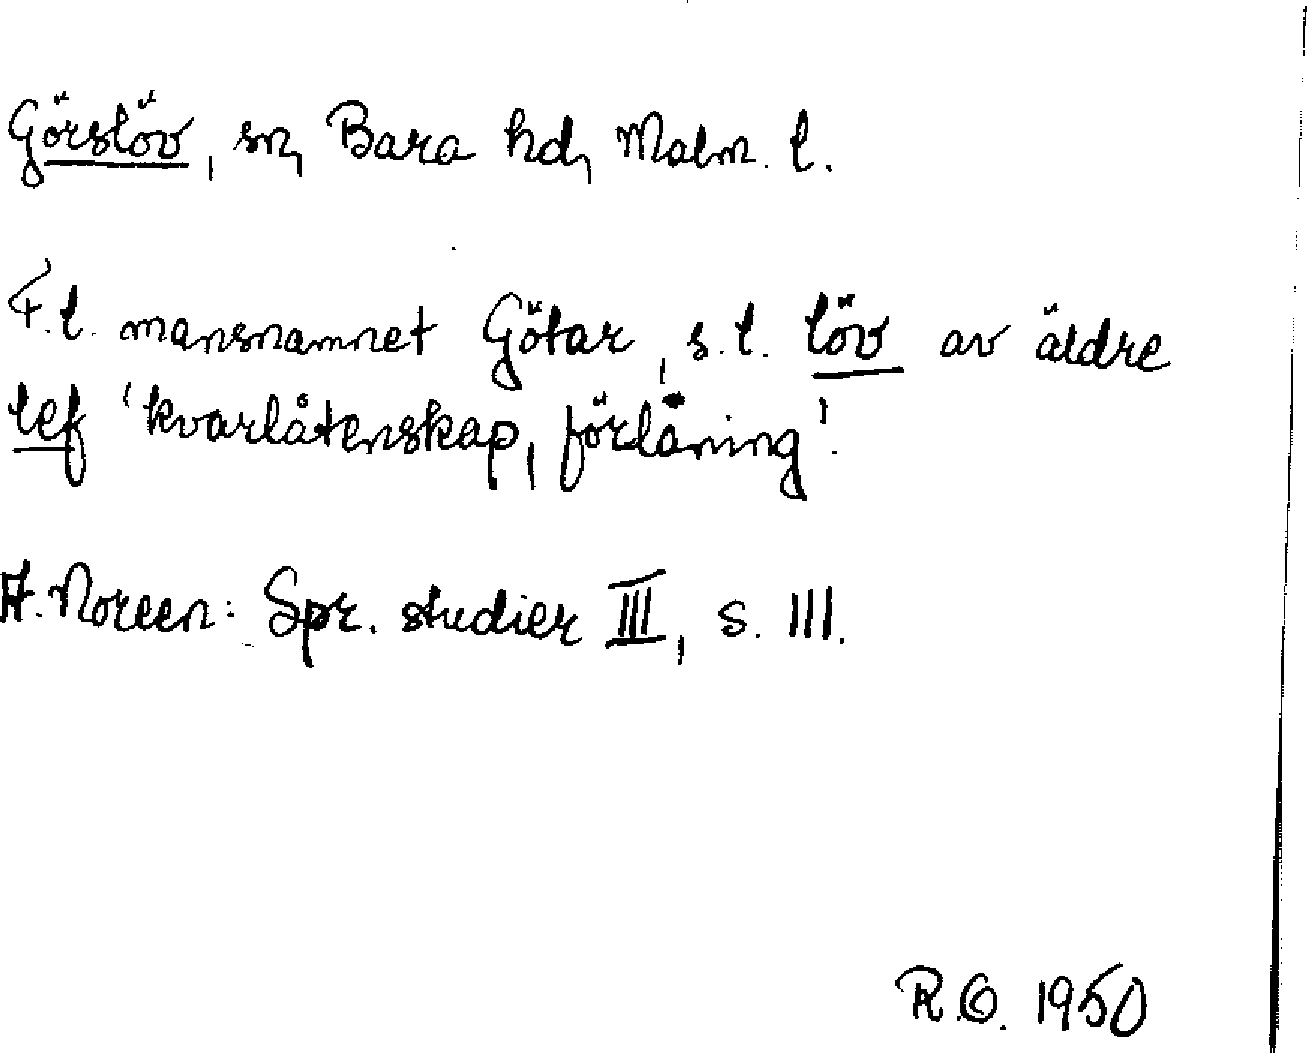 Görslöv, sn, Bara hd, Malm. l.
F.l. mansnamnet Götar, s.l. löv av äldre
lef 'kvarlåtenskap, förläning'.
A. Noreen: Spr. studier III, s. 111.
R.O. 1950